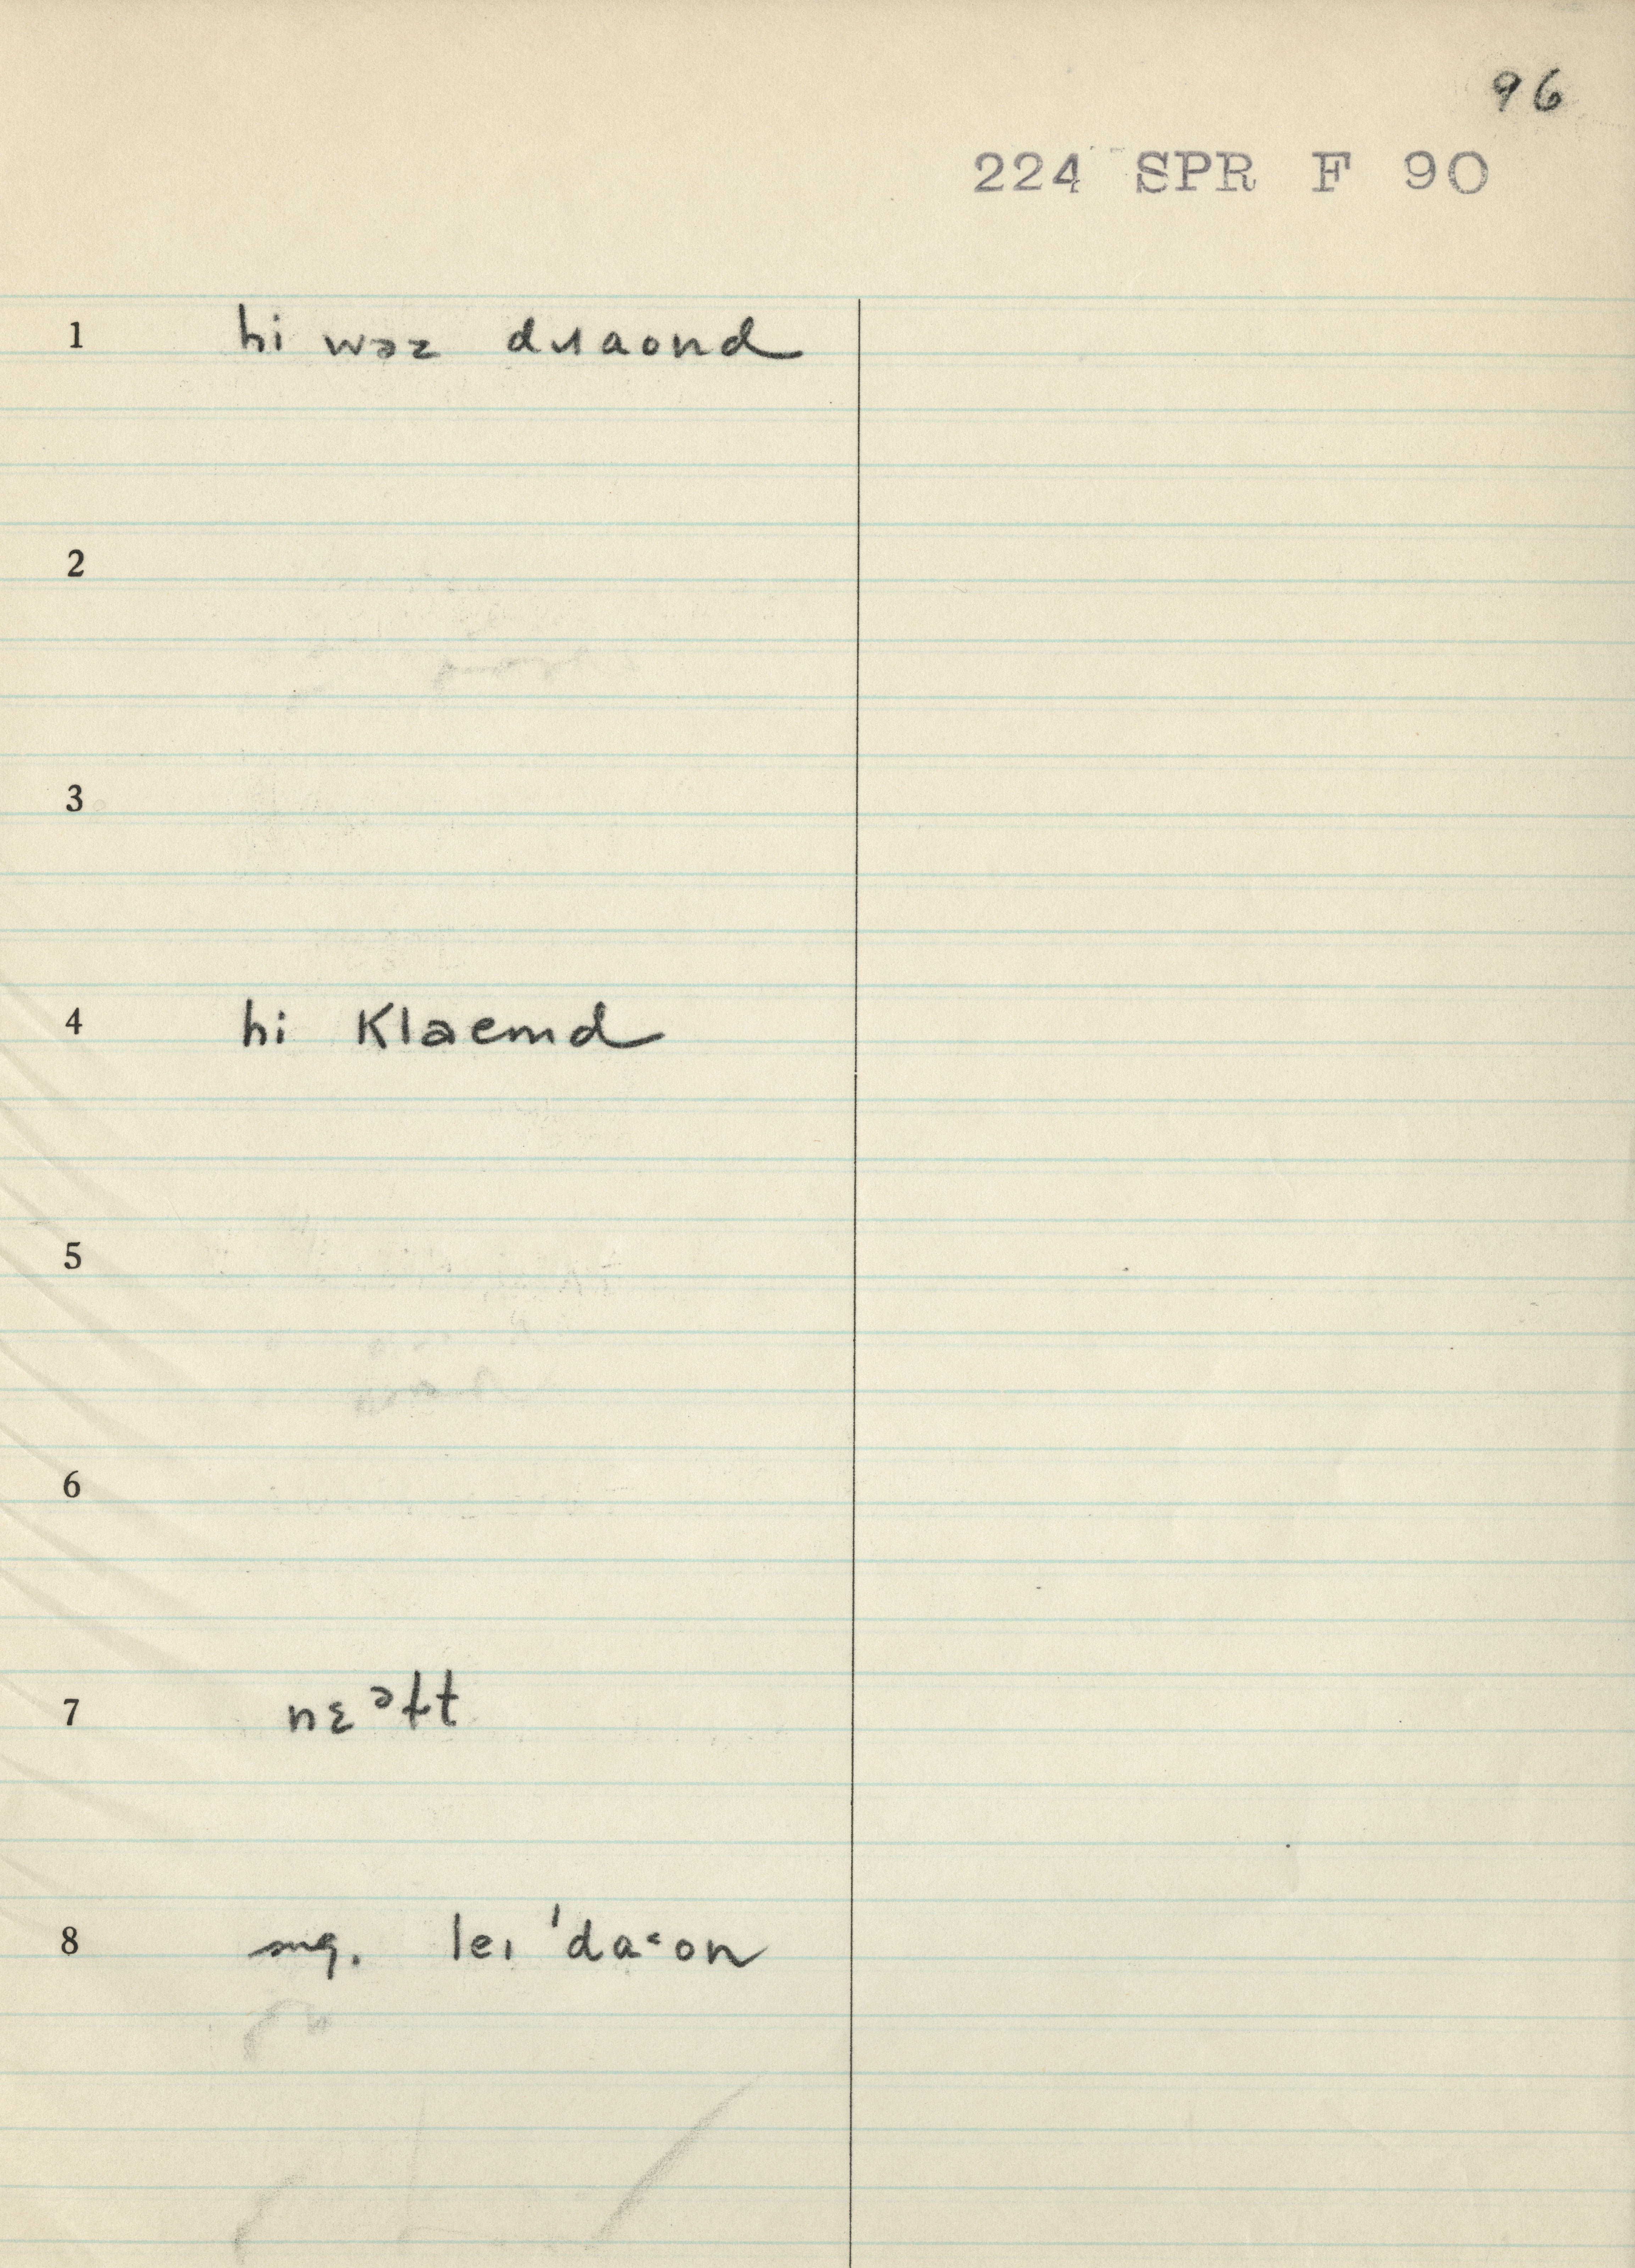 96
224 SPR F 90
1 hi wəz dɹaond
2
3
4 hi klaemd
5
6
7 nɛᵊɫt
8 sug. leɪ ˈdaˑon